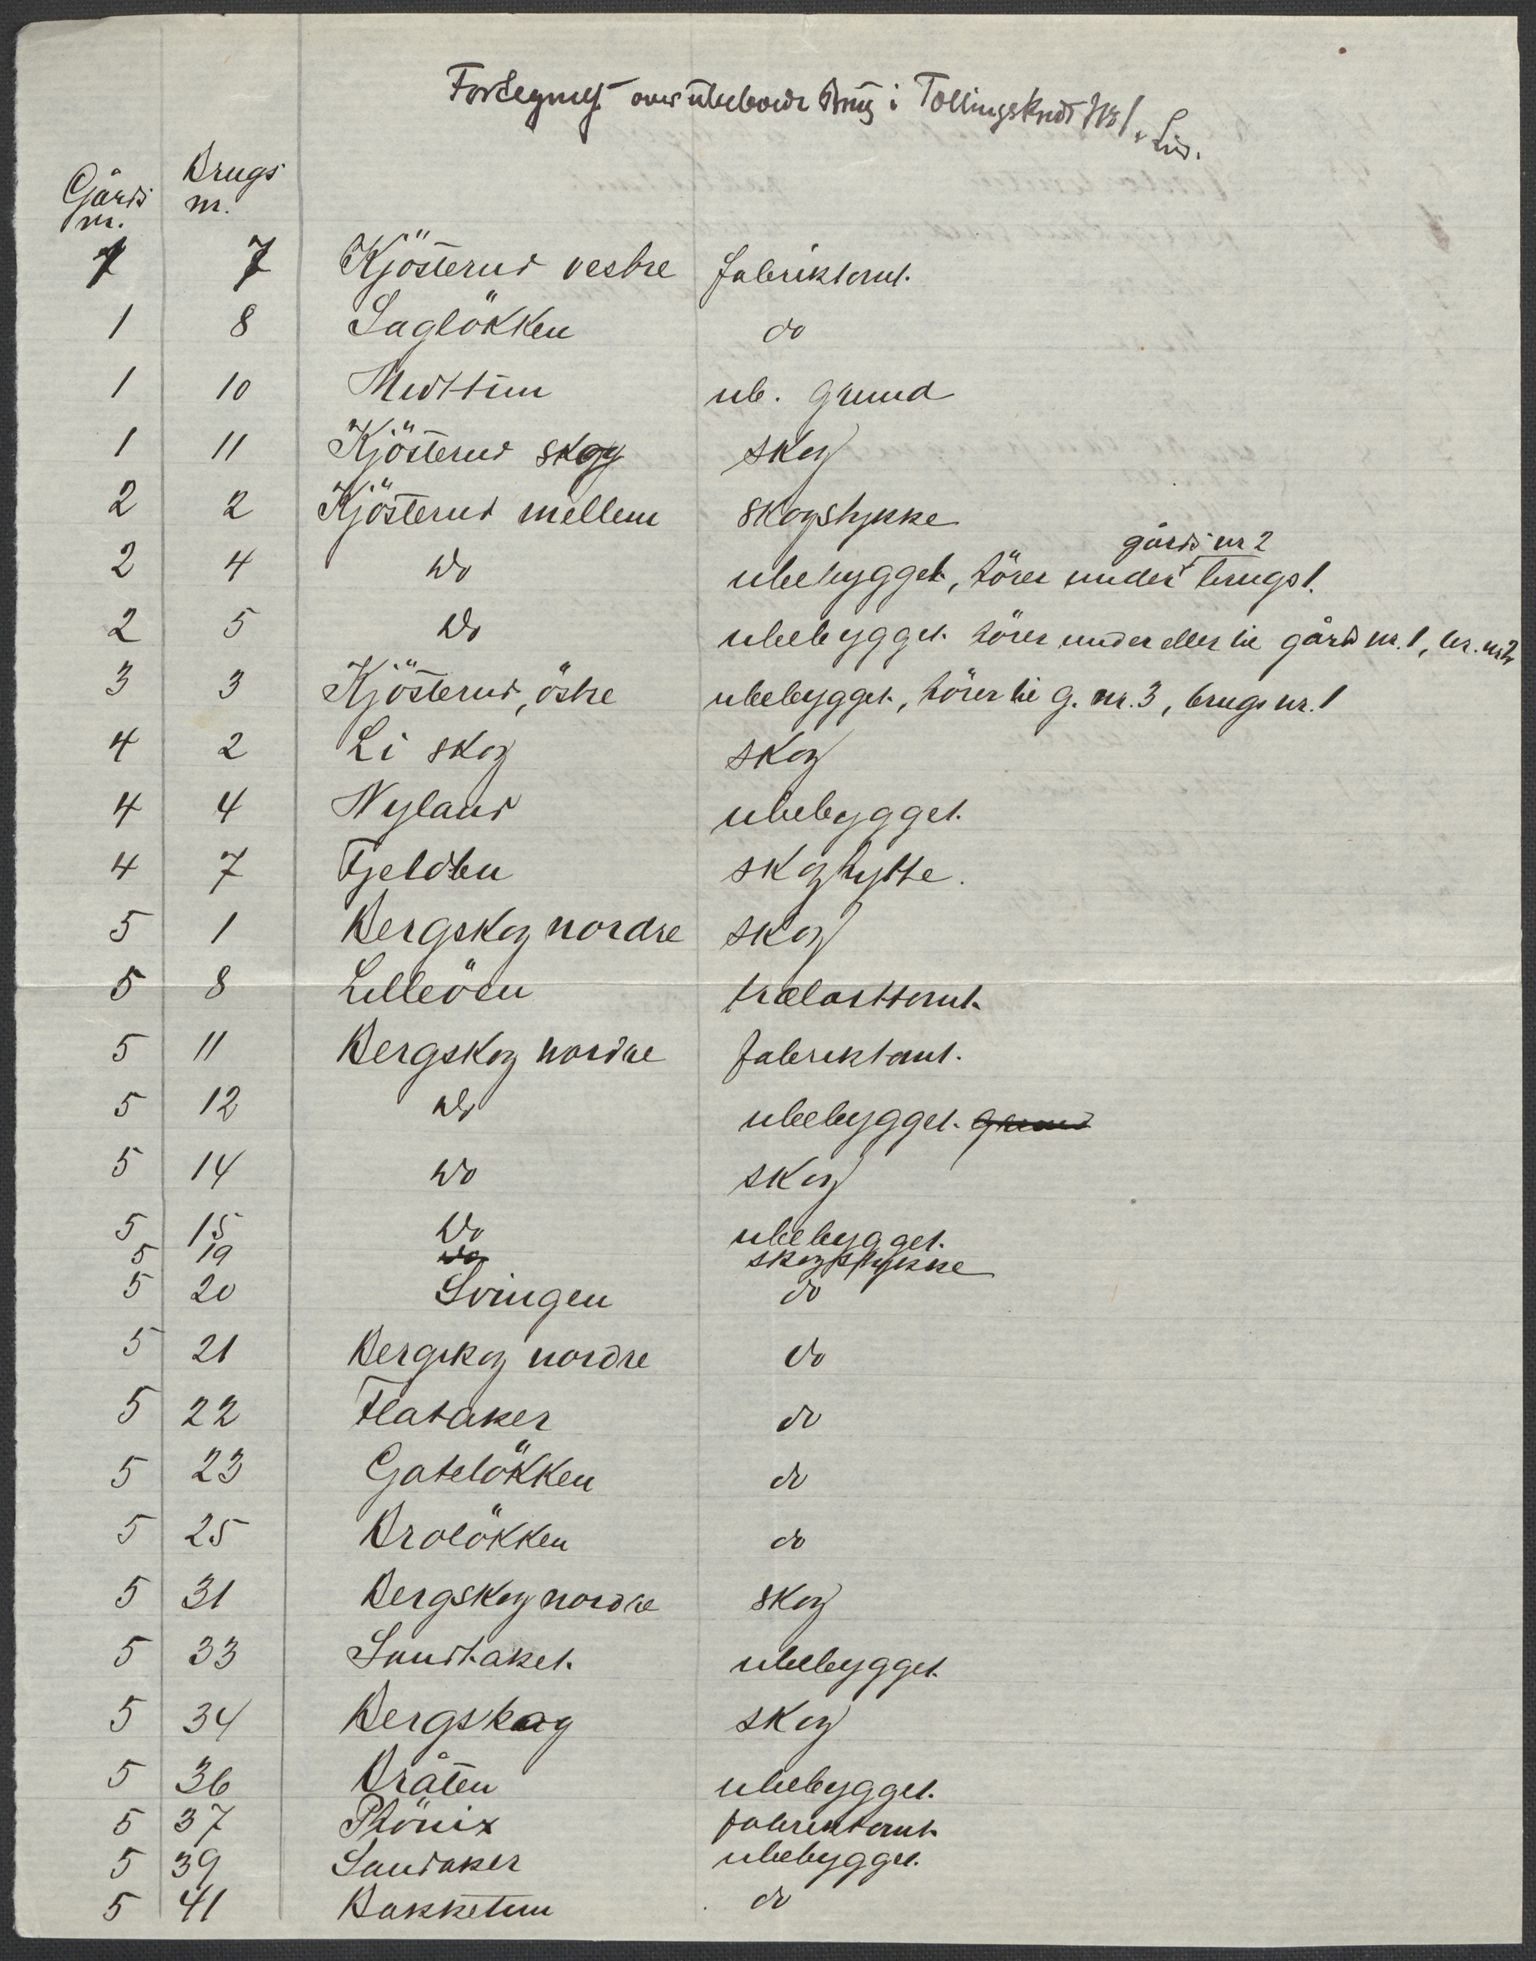 Fortegnelse over ubebodde bruk i Tellingskrets Nr 1, Lier.
Gårds nr. Brugs nr.
1 7 Kjösterud vestre fabriktomt.
1 8 Saglökken do
1 10 Midttun ub. grund
1 11 Kjösterud skog skog
2 2 Kjösterud mellem skogstykke
gårds nr 2
2 4 Do ubebygget, hörer under brugs 1.
2 5 Do ubebygget hörer under eller til gårds nr. 1, br. nr 2
3 3 Kjösterud, östre ubebygget, hörer til g. nr. 3, brugs nr. 1
4 2 Li skog skog
4 4 Nyland ubebygget.
4 7 Fjeldbu skoghytte.
5 1 Bergskog nordre skog
5 8 Lilleösen trælasttomt.
5 11 Bergskog nordre fabriktomt.
5 12 Do ubebygget. grund
5 14 Do skog
5 15 Do ubebygget.
5 19 Do skogstykke
5 20 Svingen do
5 21 Bergskog nordre do
5 22 Flataker do
5 23 Gatelökken do
5 25 Brolökken do
5 31 Bergskog nordre skog
5 33 Sandtaket. ubebygget.
5 34 Bergskog skog
5 36 Bråten ubebygget.
5 37 Phönix fabriktomt.
5 39 Sandaker ubebygget.
5 41 Bakketun do